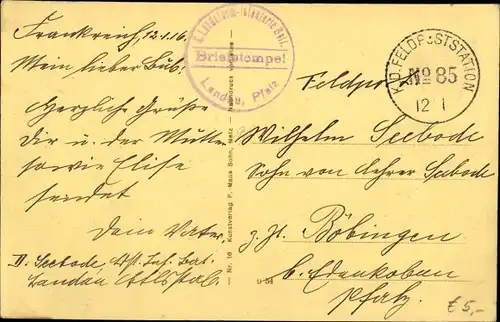 Frankreich, 12.1.16.
Mein lieber Bub.
Herzliche Grüße
dir u. der Mutter
sowie Elise
sendet
Dein Vater.
II. Seebode Inf. Bat.
Landau
Briefstempel
Landau, Pfalz
Nr. 16 Kunstverlag P. Maas Sohn, Metz — Nachdruck
K.D. FELDPOSTSTATION
No 85
12 1
Feldpost
Wilhelm Seebode
Sohn von Lehrer Seebode
z. Zt. Böbingen
b. Edenkoben
Pfalz.
€ 5,-